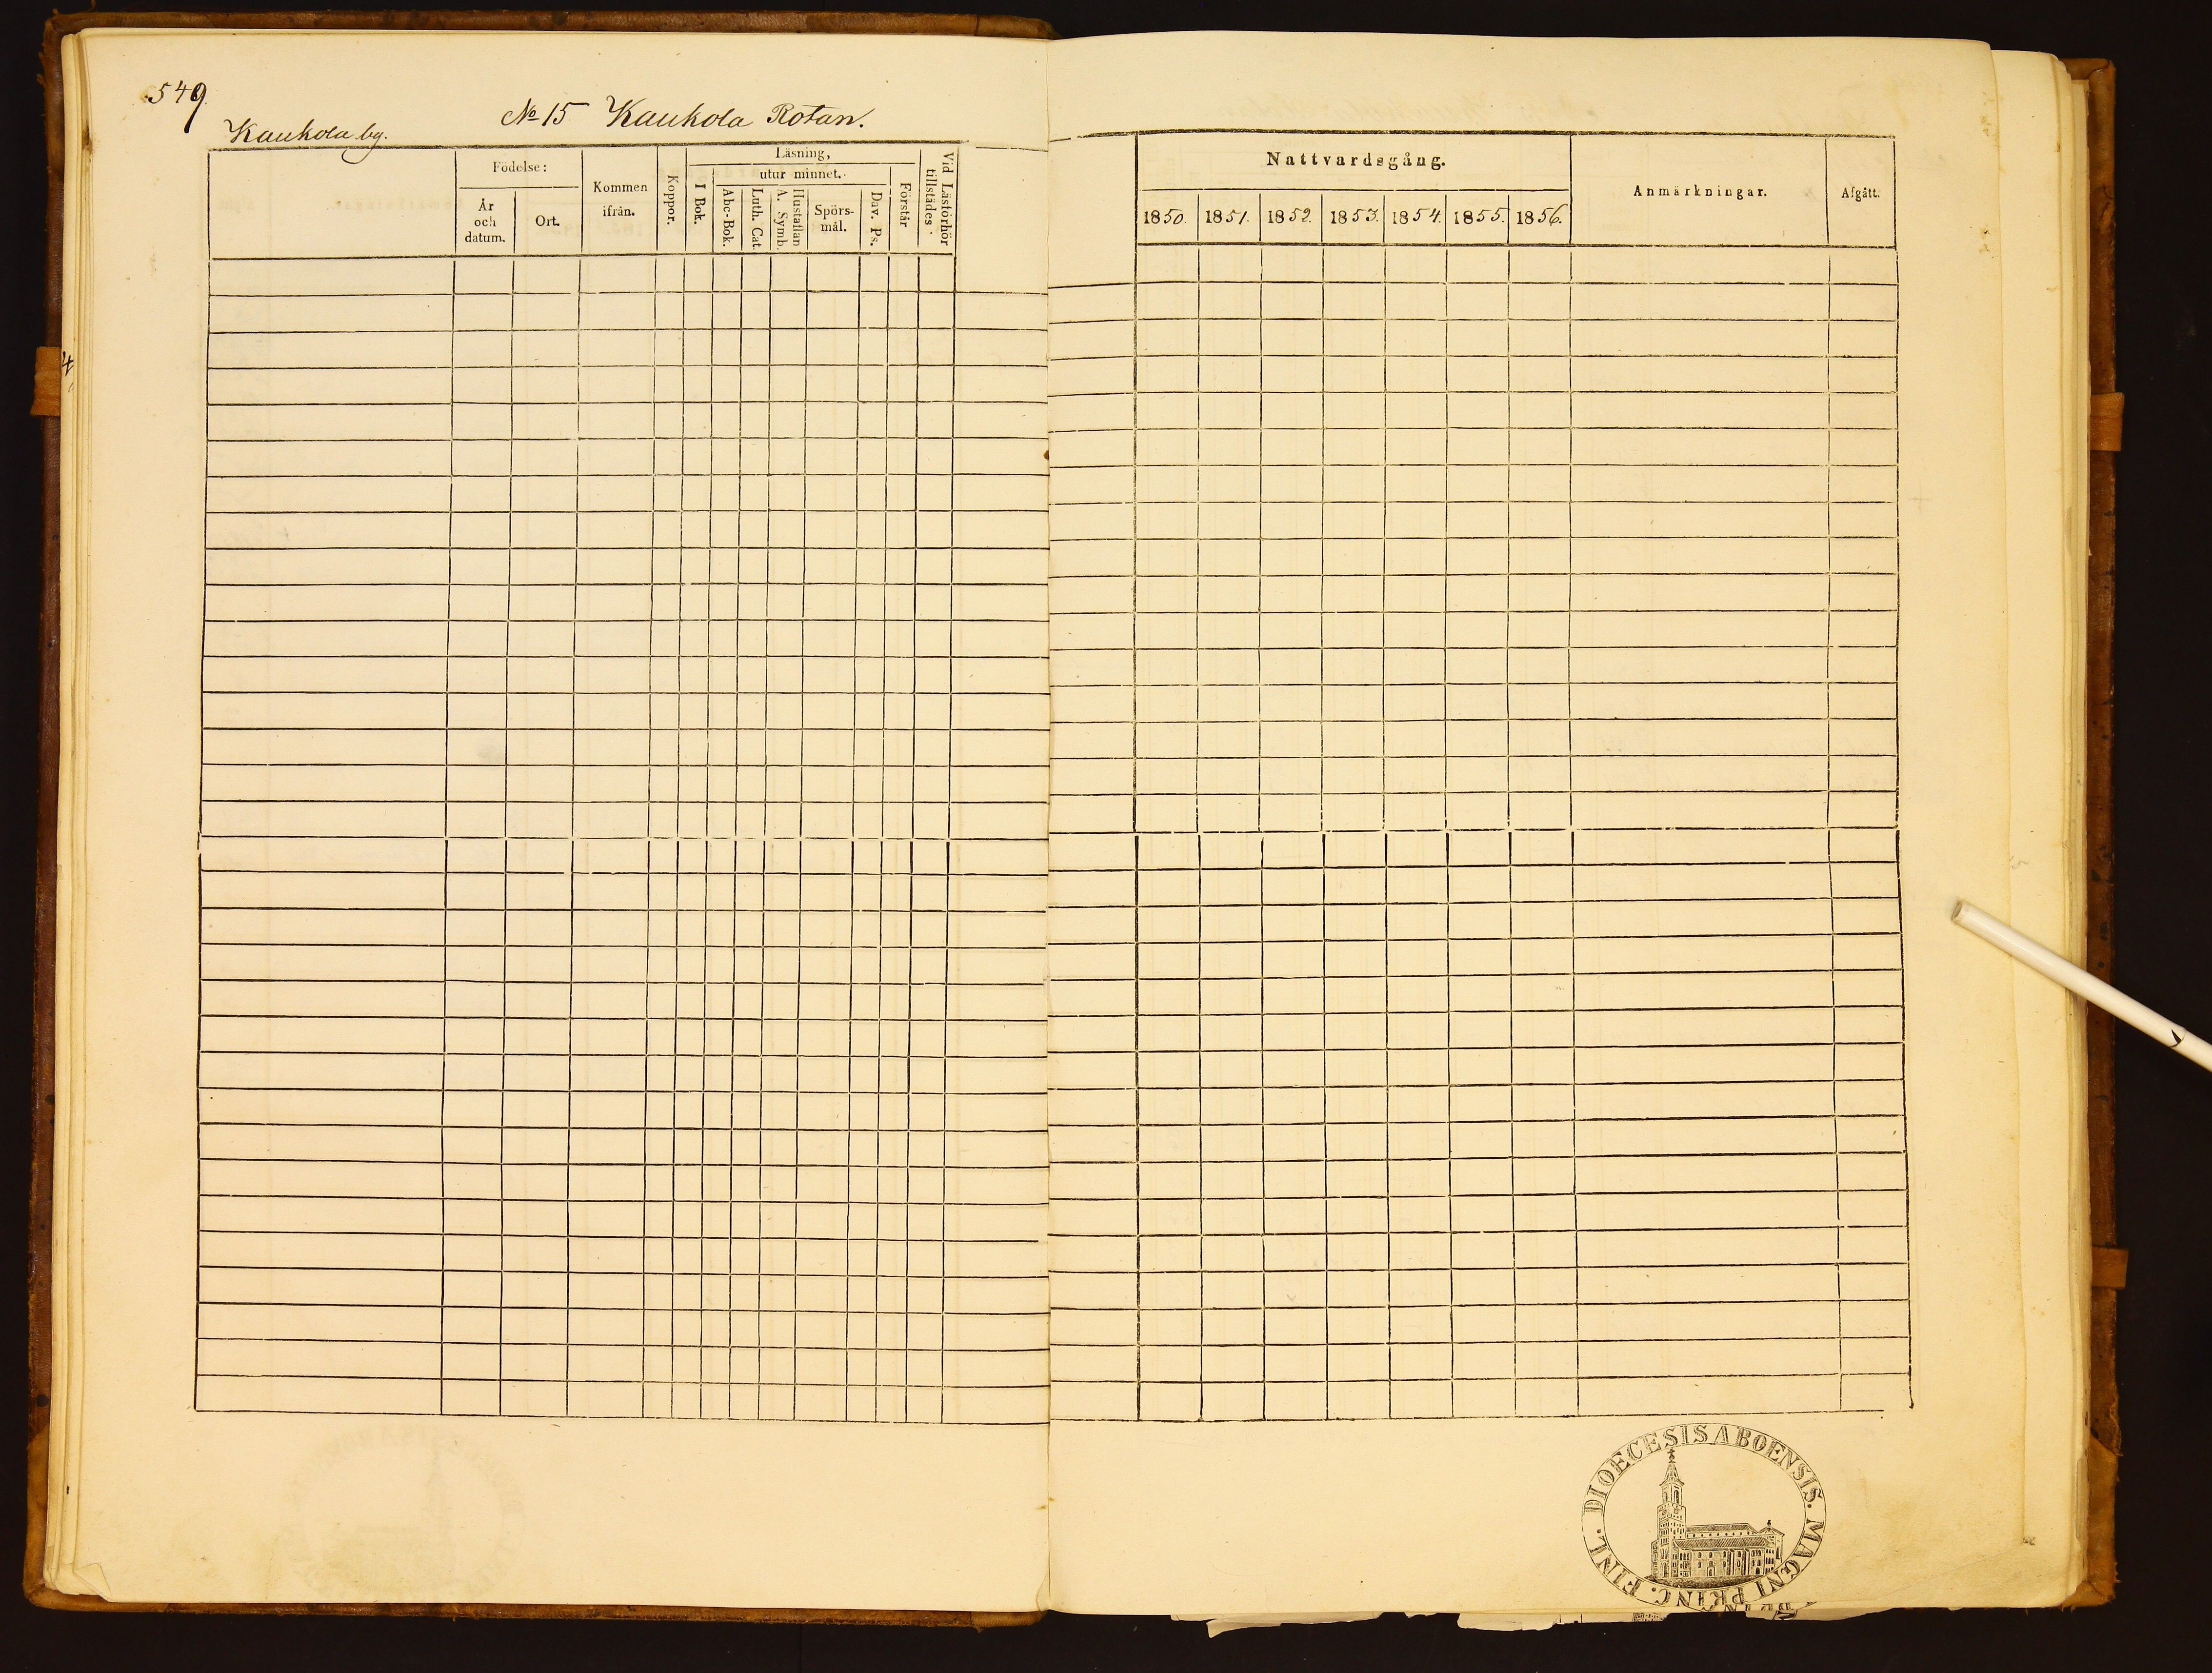 549.
Kaukola by. № 15 Kaukola Rotan.
Födelse:
År och datum.
Ort.
Kommen ifrån.
Koppor.
Läsning,
I Bok.
utur minnet.
Abc-Bok.
Luth. Cat.
Hustaflan A. Symb.
Spörs-mål.
Dav. Ps.
Förstår
Vid Läsförhör tillstädes.
Nattvardsgång.
1850. 1851. 1852. 1853. 1854. 1855. 1856.
Anmärkningar.
Afgått.
DIOECESIS ABOENSIS. MAGNI PRINC. FINL.